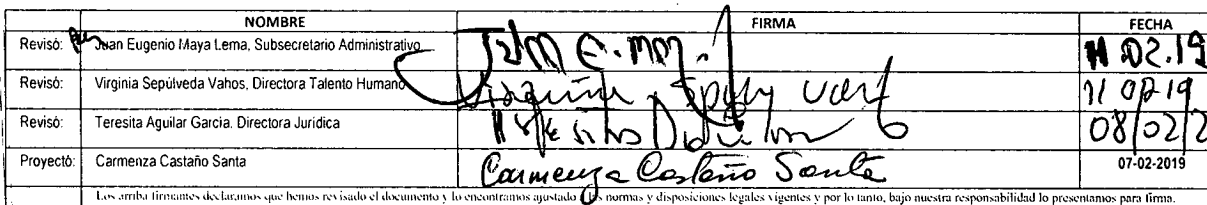 NOMBRE FIRMA FECHA
Revisó: Juan Eugenio Maya Lema, Subsecretario Administrativo 11.02.19
Revisó: Virginia Sepúlveda Vahos, Directora Talento Humano Virginia 11 02 19
Revisó: Teresita Aguilar García. Directora Jurídica 08/02/2
Proyectó: Carmenza Castaño Santa Carmenza Castaño Santa 07-02-2019
Los arriba firmantes declaramos que hemos revisado el documento y lo encontramos ajustado normas y disposiciones legales vigentes y por lo tanto, bajo nuestra responsabilidad lo presentamos para firma.